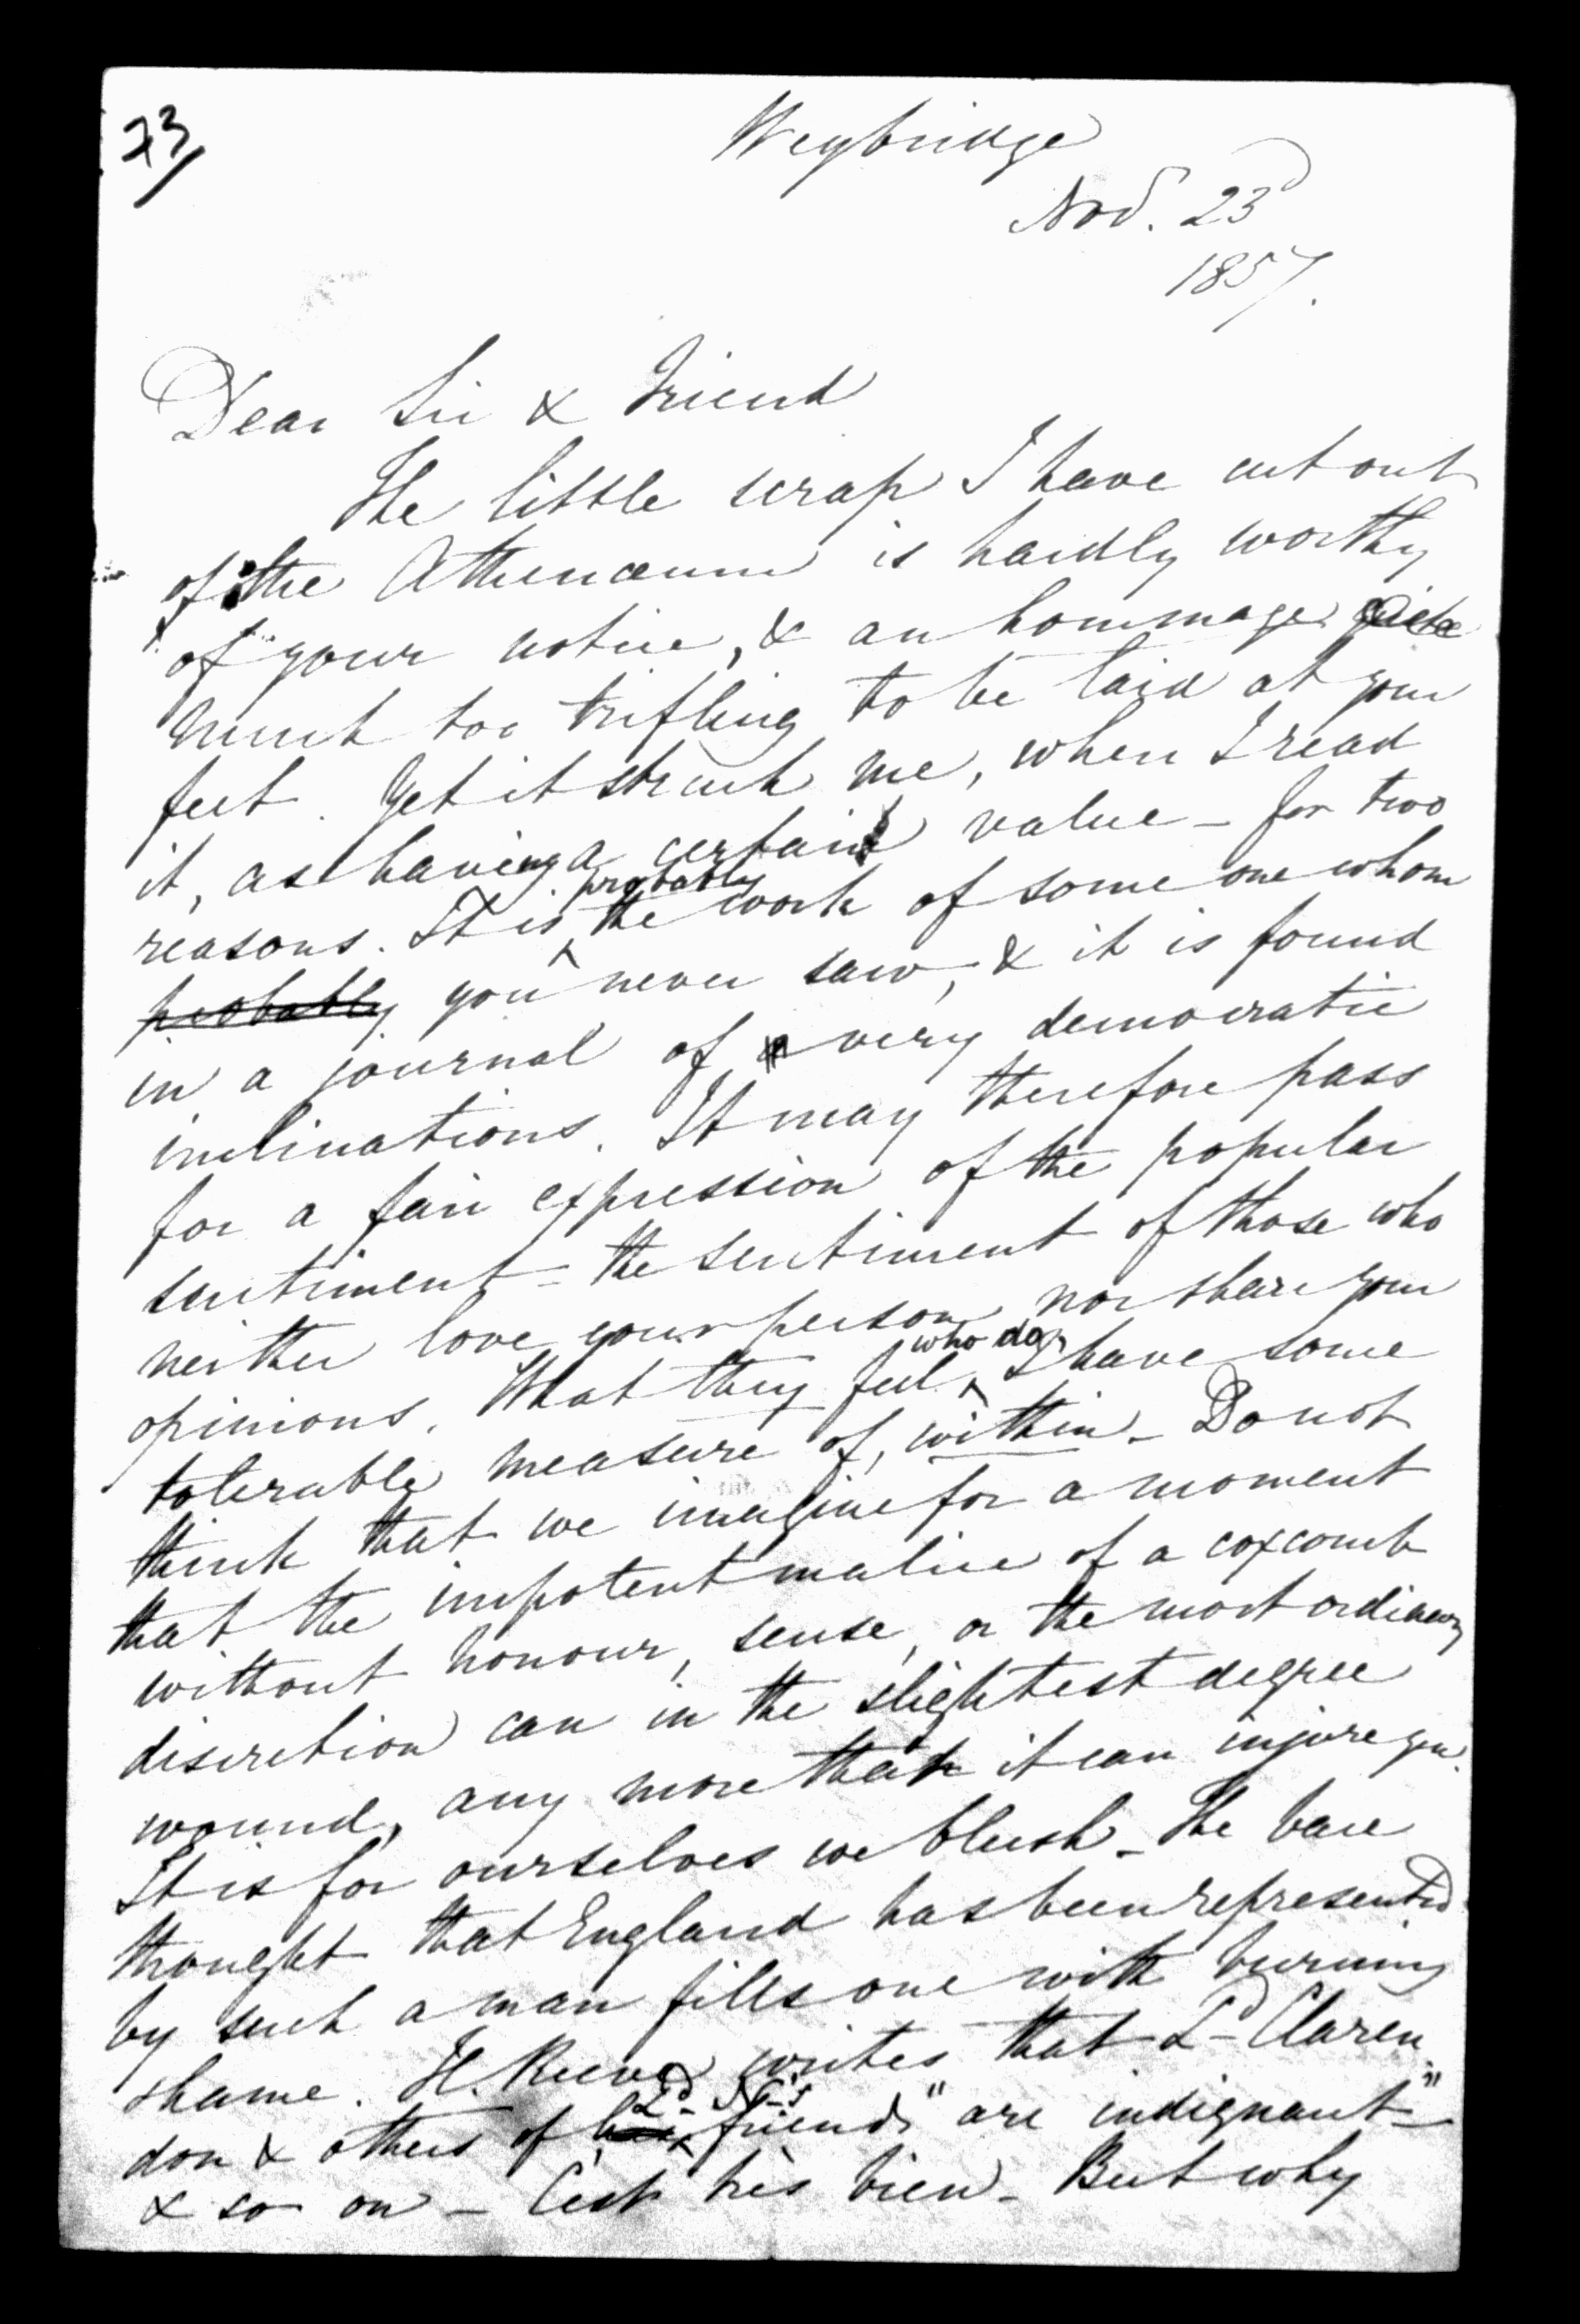 73
Weybridge
Nov. 23
1857.
Dear Sir & Friend
The little scrap I have cut out
of the Athenæum is hardly worthy
of your notice, & an hommage
much too trifling to be laid at your
feet. Yet it struck me, when I read
it, as having a certain value – for two
reasons. It is probably the work of some one whom
probably you never saw, & it is found
in a journal of very democratic
inclinations. It may therefore pass
for a fair expression of the popular
sentiment – the sentiment of those who
neither love your person nor share your
opinions. What they feel who do, I have some
tolerable measure of, within – Do not
think that we imagine for a moment
that the impotent malice of a coxcomb
without honour, sense, or the most ordinary
discretion can in the slightest degree
wound, any more than it can injure you.
It is for ourselves we blush – The bare
thought that England has been represented
by such a man fills one with burning
shame. H. Reeve writes that Ld Claren
don & others of his Ld N's friends "are indignant"
& so on – C'est très bien – But why